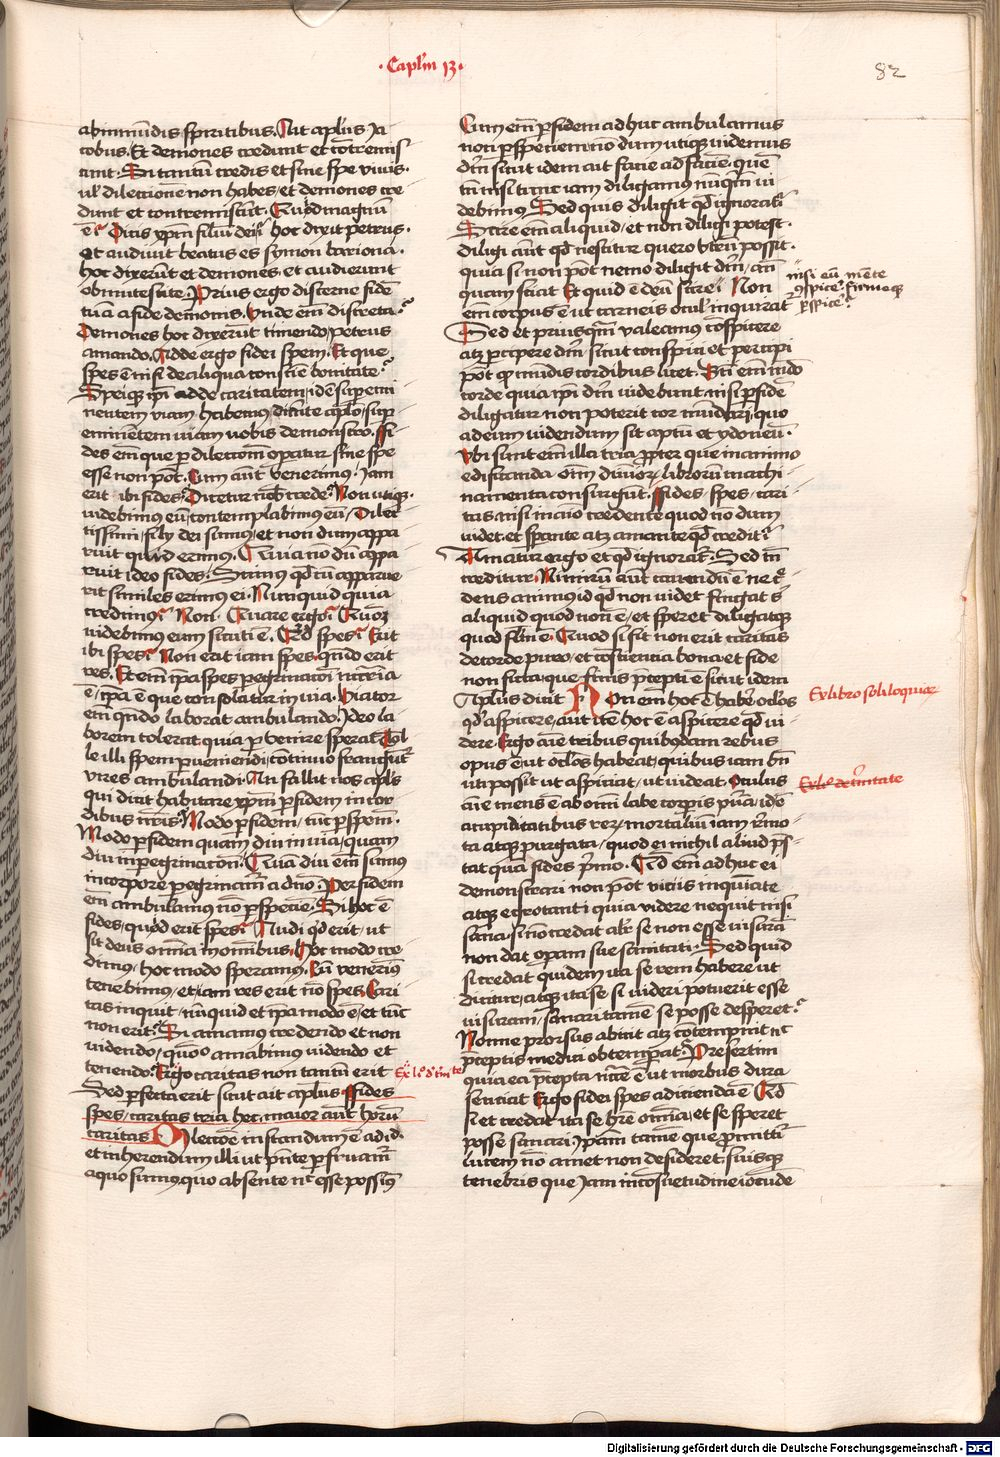 · Caplm 13 ·
82
abinmundis spiritibus. Ait aplus Ja
cobus. Et demones credunt et cōtremis
cunt. Si tantū credis et sine spe viuis.
ul' dilectionē non habes, et demones cre
dunt et contremiscūt. Quid magnū
ē? Dicis xpm filiū dei? hoc dixit petrus.
Et audiuit beatus es symon bariona.
hoc dixerūt et demones, et audierunt
obmutescite. Prius ergo discerne fidē
tuā a fide demonis. Vnde em̄ discreta?
Demones hoc dixerūt timendo, petrus
amando. Adde ergo fidei spem. Et que
spes ē nisi de aliqua consciē bonitate?
Speiqz ip̄i adde caritatem, idē supemi
nentem viam habemus, dicente aplo, sup
eminētem viam uobis demonstro. Fi
des em̄ que p dilectōm opatur sine spe
esse non pōt. Cum aūt venerimus. Jam
erit ibi fides? Dicetur nob̄ crede? Non utiqz.
videbimus eū, contemplabimus eū, Dilec
tissimi, filij dei sumus, et non dum appa
ruit quid erimus. Quia nō dū appa
ruit ideo fides. Scimus qd cū apparue
rit similes erimus ei. Nunquid quia
credimus? Non. Quare ergo? Qm̄
videbimus eum sicuti ē. Qd spes? Erit
ibi spes? Non erit iam spes, qn̄do erit
res. Etem̄ ipa spes pegrinatōni nccria
ē, ipa ē que consolatur in via. Viator
em̄ qn̄do laborat ambulando. Ideo la
borem tolerat quia puenire sperat. Tol
le illi spem pueniendi, continuo frangūt
vires ambulandi. An fallit nos apl's
qui dicit habitare xpm p fidem in cor
dibus nr̄is? Modo p fidem, tūc p spem.
Modo p fidem quam diu in via, quam
diu in pegrinatōne. Quā diu em̄ sumus
in corpore pegrinam̄ a dn̄o. Per fidem
em̄ ambulamus nō p speciē. Si hoc ē
fides, quod erit spes? Audi qd erit, ut
sit deus omīa in omībus. Hoc modo cre
dimus, hoc modo speramus. Cū venerim9
tenebimus, et iam res erit nō spes. Cari
tas inquit, nūquid et ipa modo ē, et tūc
non erit? Si amamus credendo et non
videndo, quōo amabimus uidendo et
tenendo. Ergo caritas non tantū erit
Sed perfecta erit sicut ait aplus Fides
spes, caritas tria hec, maior aūt horū
caritas. Dilectōe instandum ē ad id.
et inherendum illi ut pn̄te perfruam̄
a quo sumus, quo absente nec esse possim9
Cum em̄ p fidem adhuc ambulamus
non p speciem nō dum utiqz videmus
dm̄ sicut idem ait facie ad faciē. quē
tn̄ nisi tunc iam diligamus nūqm̄ ui
debimus. Sed quis diligit qd ignorat?
Scire em̄ aliquid, et non diligi potest.
diligi aūt qd nescitur quero vtrū possit.
quia si non pōt nemo diligit dm̄, an
quam sciat. Et quid ē deū scire? Non
em̄ corpus ē ut carneis ocul' inquirat
nisi eū mēte
9spice? firmeqz
pspice?
Sed et priusqm̄ valeamus cōspicere
atz percipere dm̄ sicut conspici et percipi
pōt qd mūdis cordibus licet. Bti em̄ mūdo
corde quia ip̄i dm̄ videbunt. nisi p fidē
diligatur non poterit cor mūdari, quo
ad eum uidendum sit aptū et ydoneū.
Vbi sunt em̄ illa tria ppter que in animo
edificanda om̄ diuinor librorū machi
namenta consurgūt. Fides, spes, cari
tas. nisi in aīo credente quod nō dum
uidet. et sperante atz amante qd credit?
Amatur ergo et qd ignorat. Sed tn̄
creditur. Nimirū aūt cauendū ē ne c̄
dens animus id qd non videt fingat s'
aliquid quod non ē, et speret diligatqz
quod flm̄ ē. Quod si sit non erit caritas
de corde puro, et cōscientia bona, et fide
non ficta, que finis pcepti ē sicut idem
Aplus dicit. Non em̄ hoc ē habē oclos
Ex libro soliloquiar
qd aspicere, aut itē hoc ē aspicere qd vi
dere. Ergo aīe tribus quibusdam rebus
opus ē ut oclos habeat, quibus iam bn̄
uti possit ut aspiciat, ut uideat. Oculus
aīe mens ē ab omī labe corporis pura, id ē
a cupiditatibus rer mortaliū iam rēmo
ta atque purgata, quod ei nichil aliud prēs
tat quā fides prīmo. Qd em̄ adhuc ei
demonstrari non pōt viciis inquiate
atque egrotanti quia videre nequit nisi
sana. si nō credat alr se non esse uisurā
non dat opam sue sanitati. Sed quid
si credat quidem ita se rem habere ut
dicitur, atque ita se si uideri potuerit esse
uisuram, sanari tamē se posse desperet?
Nonne prorsus abicit atz cōtempnit nec
pceptis medici obtempat? Presertim
quia ea pcepta ncē ē ut morbus dura
sentiat. Ergo fidei spes adicienda ē. Qd
si et credat ita se hr̄e omīa, et se speret
posse sanari. ipam tamē que promittit
lucem nō amet non desideret, suisqz
tenebris que iam in cōsuetudine iocūde
Ex lo d tīnte
Ex lo de trinitate
Digitalisierung gefördert durch die Deutsche Forschungsgemeinschaft - DFG